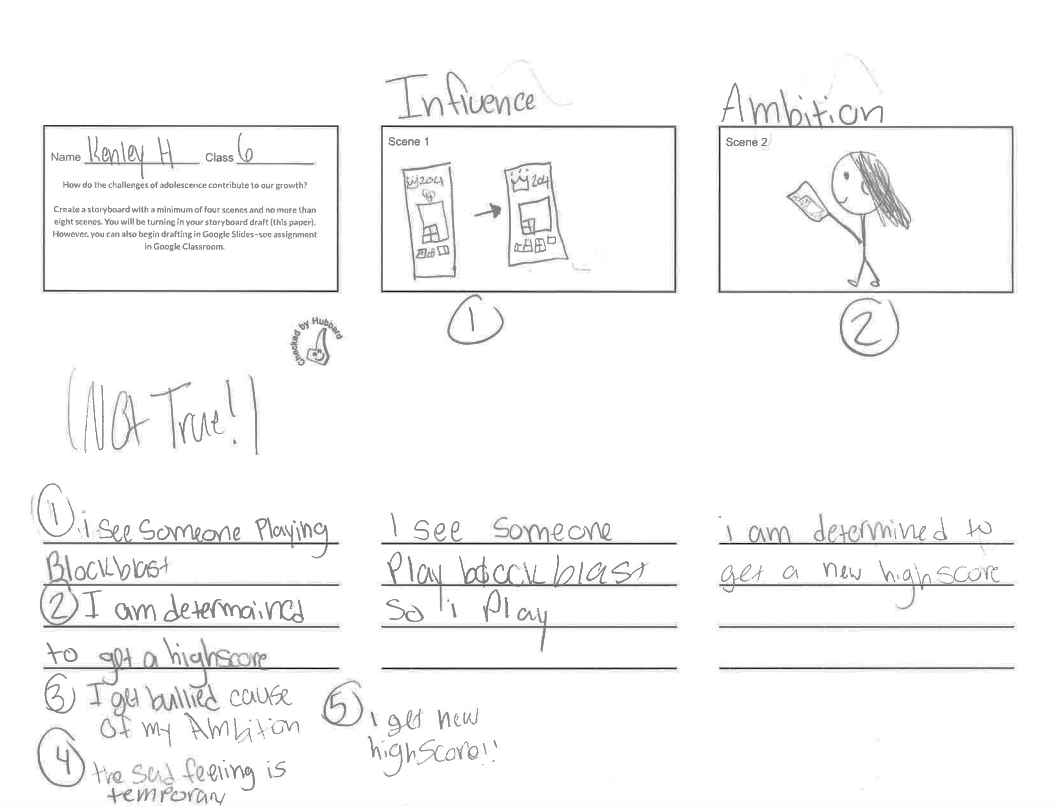 Influence
Ambition
Name Kenley H Class 6
How do the challenges of adolescence contribute to our growth?
Create a storyboard with a minimum of four scenes and no more than
eight scenes. You will be turning in your storyboard draft (this paper).
However, you can also begin drafting in Google Slides–see assignment
in Google Classroom.
Scene 1
204
204
Scene 2
1
2
Checked by Hubbard
(Not True!)
1 i see someone Playing
Blockblast
2 I am determained
to get a highscore
3 I get bullied cause
of my Ambition
4 the sad feeling is
temporary
5 i get new
highscore!!
I see someone
Play blockblast
so i Play
i am determined to
get a new highscore